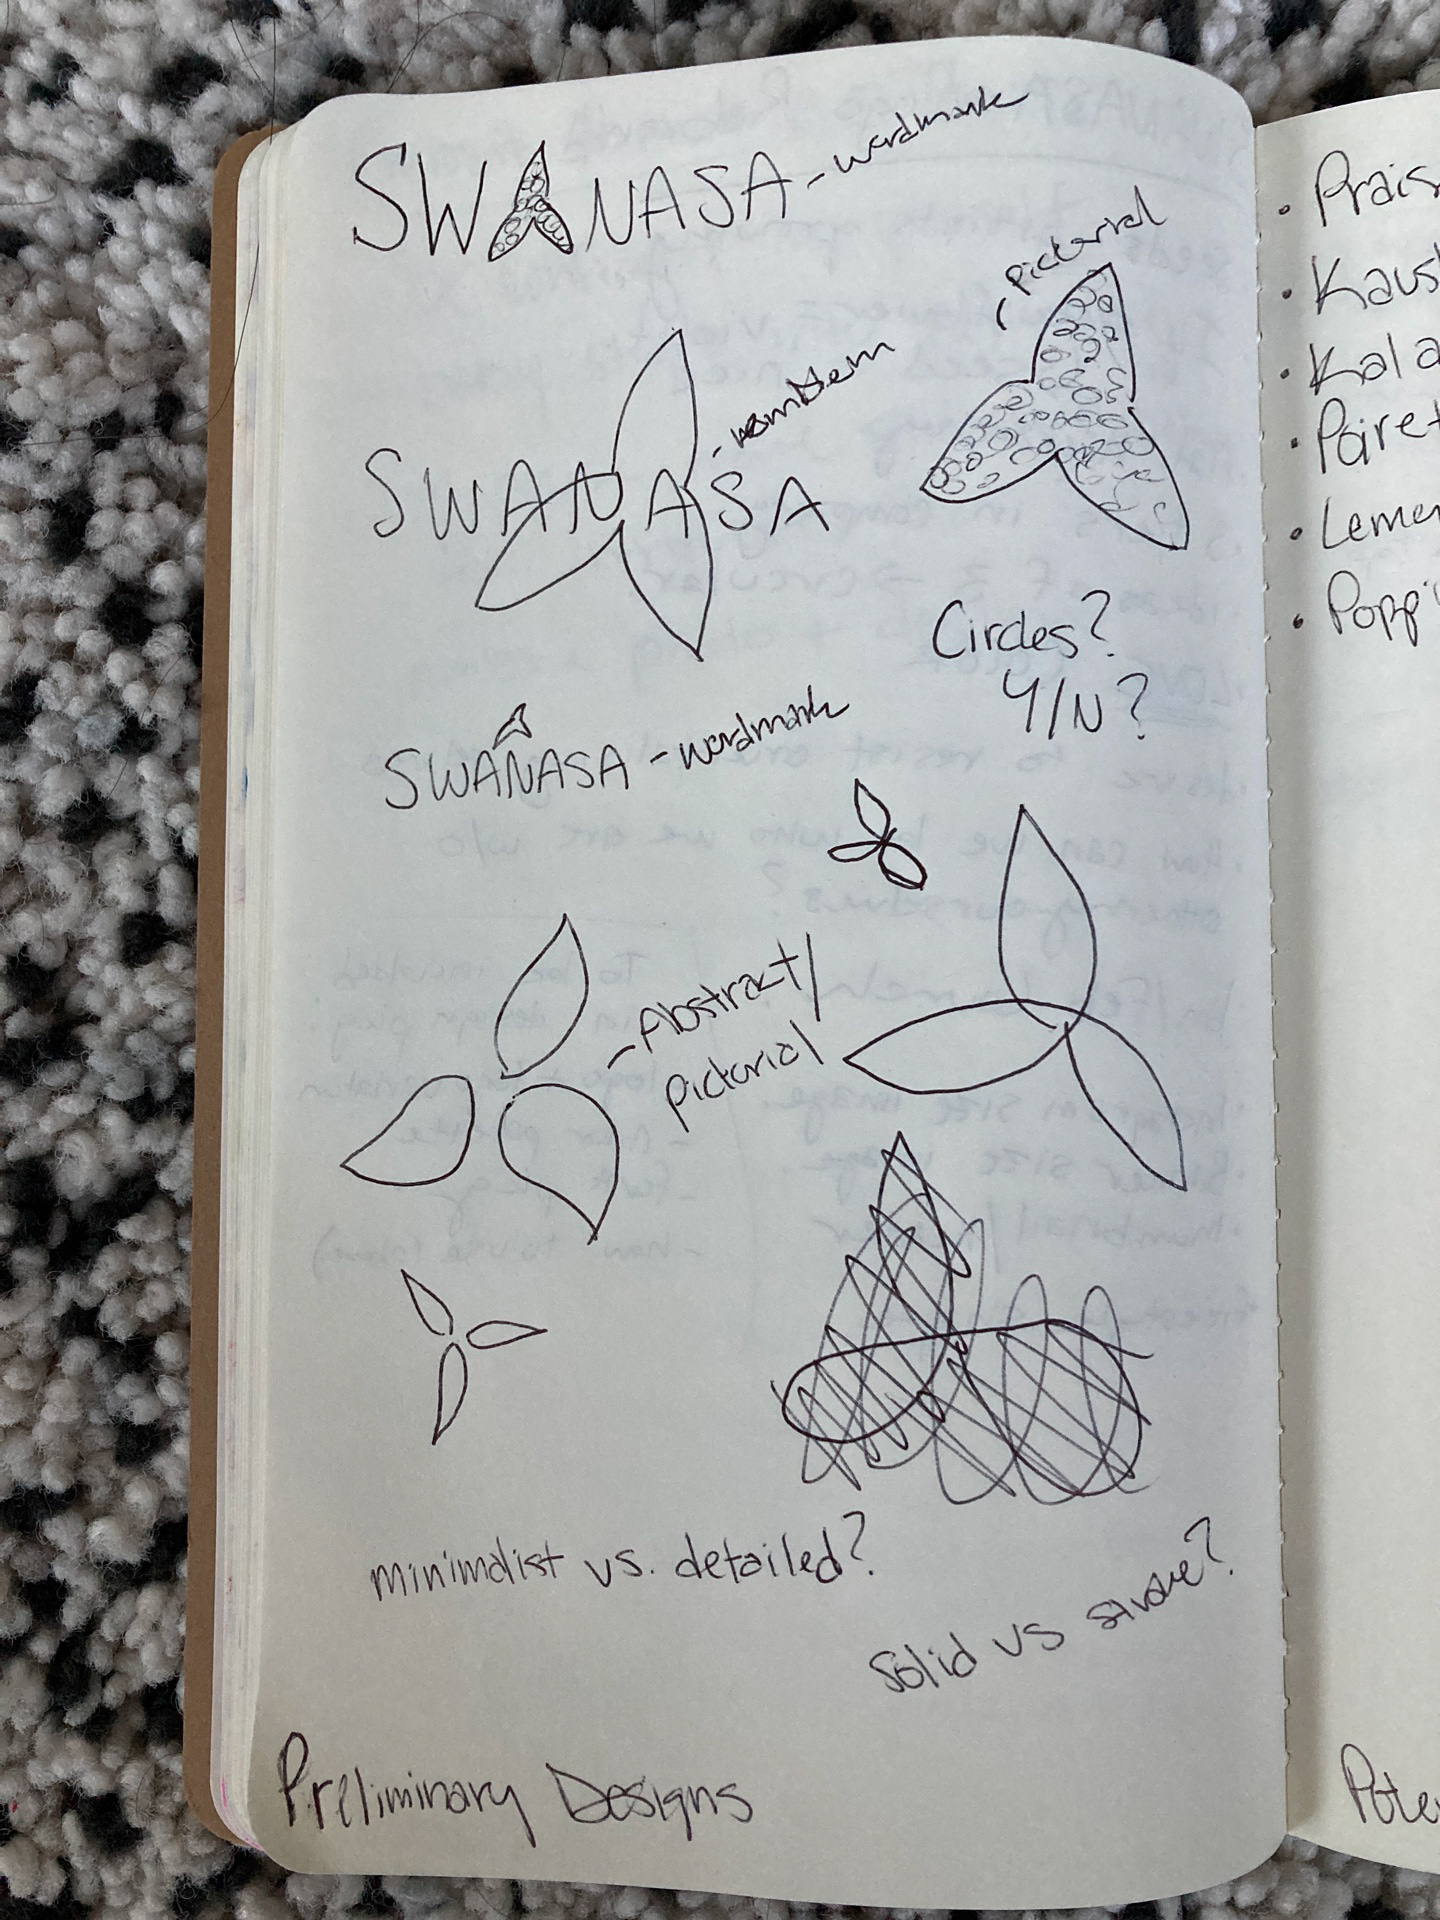 SWANASA - wordmark
- pictorial
SWANASA
Circles?
Y/N?
SWANASA - wordmark
- Abstract/
pictorial
minimalist vs. detailed?
solid vs stroke?
Preliminary Designs
• Prais
• Kaush
• Kala
• Poiret
• Lemo
• Poppi
Pote